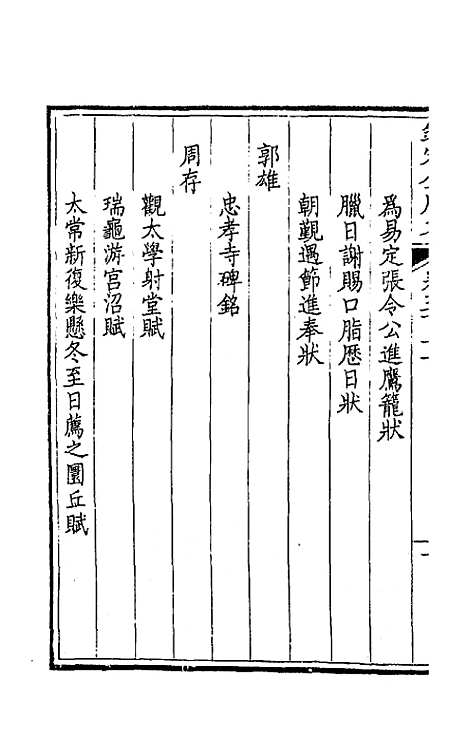 為易定張令公進鷹籠狀
臘日謝賜口脂歷日狀
朝覲遇節進奉狀
郭雄
忠孝寺碑銘
周存
觀太學射堂賦
瑞龜游宮沼賦
太常新復樂懸冬至日薦之圜丘賦